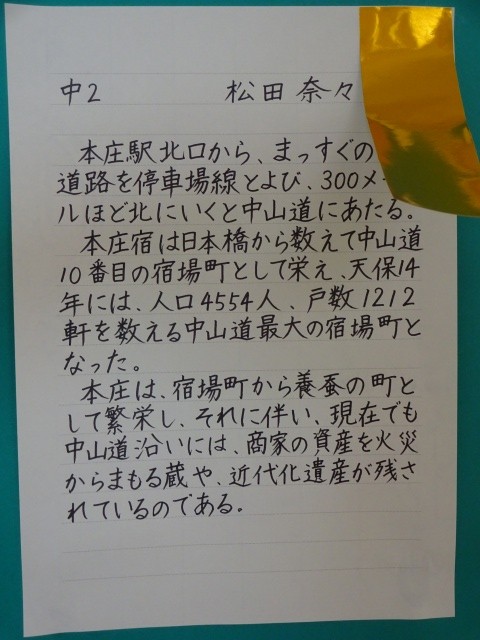 中2 松田奈々
本庄駅北口から、まっすぐの
道路を停車場線とよび、300メー
ルほど北にいくと中山道にあたる。
本庄宿は日本橋から数えて中山道
10番目の宿場町として栄え、天保14
年には、人口4554人、戸数1212
軒を数える中山道最大の宿場町と
なった。
本庄は、宿場町から養蚕の町と
して繁栄し、それに伴い、現在でも
中山道沿いには、商家の資産を火災
からまもる蔵や、近代化遺産が残さ
れているのである。